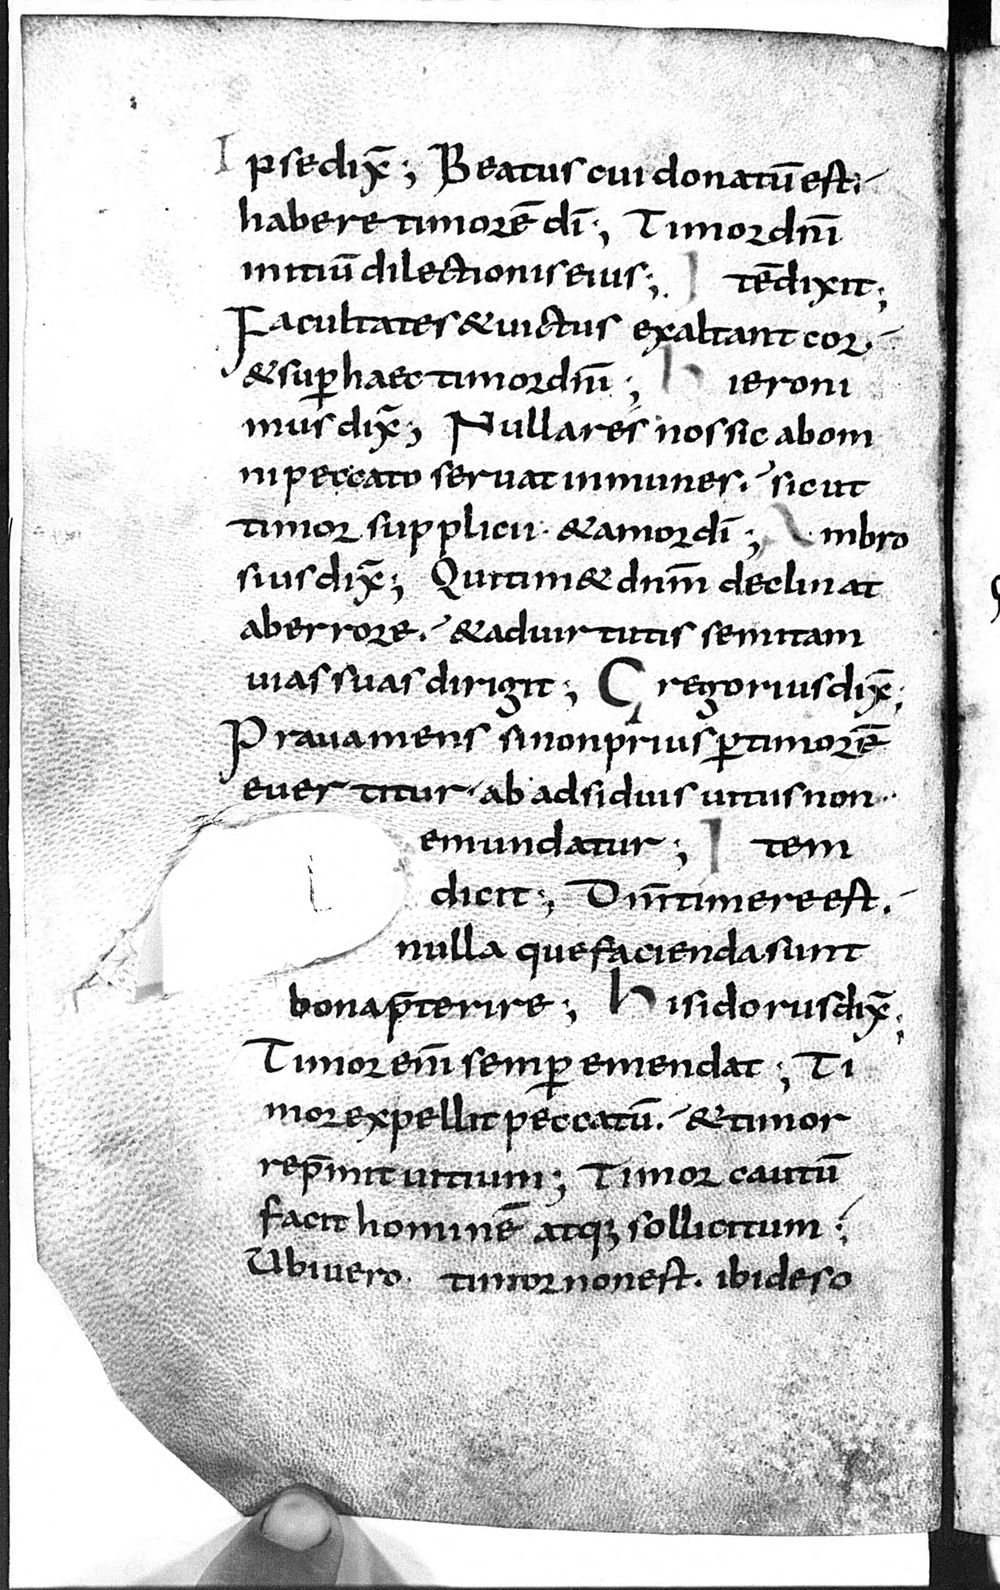 Ipse dix̄; Beatus cui donatū est.
habere timorē dī; Timor dn̄i
initiū dilectionis eius; Itē dixit;
Facultates & uictus exaltant cor.
& sup̱ haec timor dn̄i; Hieroni
mus dix̄; Nulla res nos sic ab om
ni peccato seruat inmunes. sicut
timor supplicii. & amor dī; Ambro
sius dix̄; Qui tim& dnm̄ declinat
ab errore. & ad uirtutis semitam
uias suas dirigit; Gregorius dix̄;
Praua mens si non prius p̱ timorē
euertitur ab adsiduis uitus non
emundatur; Item
dicit; Dn̄m timere est.
nulla que facienda sunt
bona p̄terire; Hisidorus dix̄;
Timor enī semp̱ emendat; Ti
mor expellit peccatū. & timor
rep̄mit uitium; Timor cautū
facit hominē atq; sollicitum;
Ubi uero timor non est. ibi deso